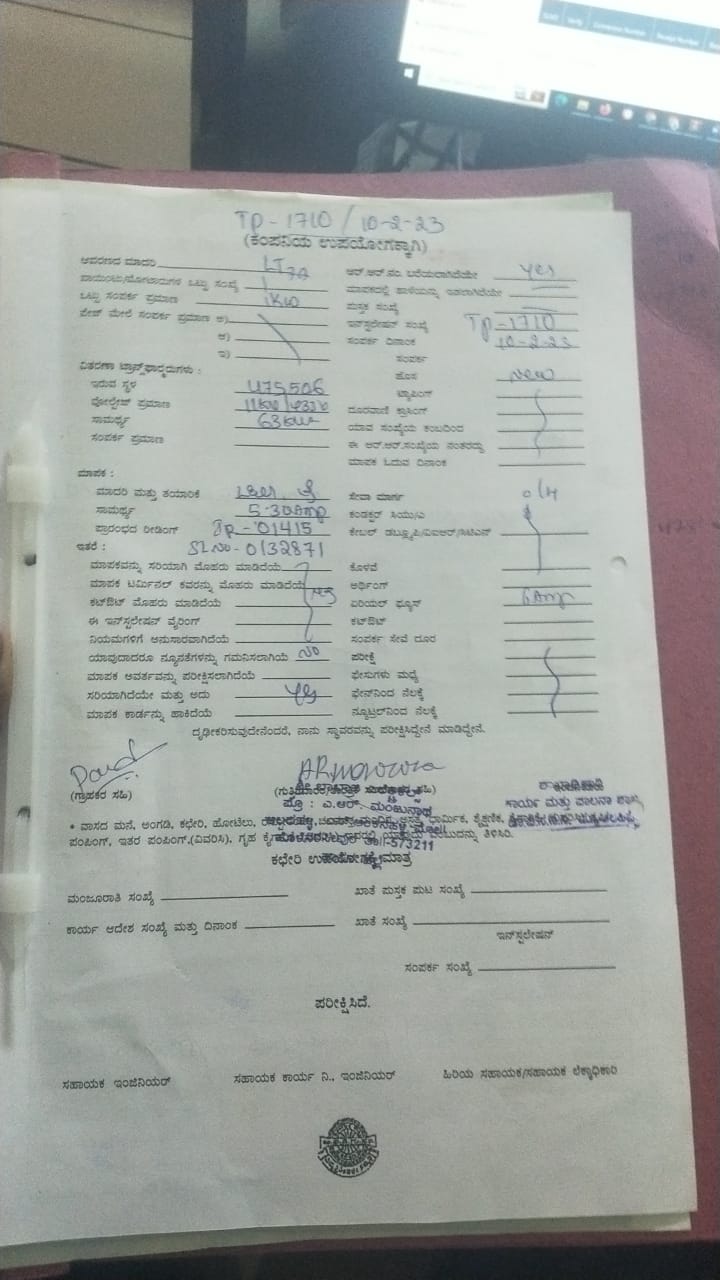 TP-1710 / 10-2-23
(ಕಂಪನಿಯ ಉಪಯೋಗಕ್ಕಾಗಿ)
ಆವರಣದ ಮಾದರಿ LT7a ಆರ್.ಆರ್.ನಂ. ಬರೆಯಲಾಗಿದೆಯೇ Yes
ಪಾಯಿಂಟು/ಮೋಟಾರುಗಳ ಒಟ್ಟು ಸಂಖ್ಯೆ ಮಾಪಕದಲ್ಲಿ ಹಾಳೆಯನ್ನು ಇಡಲಾಗಿದೆಯೇ
ಒಟ್ಟು ಸಂಪರ್ಕ ಪ್ರಮಾಣ 1KW ಪುಸ್ತಕ ಸಂಖ್ಯೆ
ಪೇಜ್ ಮೇಲೆ ಸಂಪರ್ಕ ಪ್ರಮಾಣ ಅ) ಇನ್‌ಸ್ಟಲೇಷನ್ ಸಂಖ್ಯೆ TP-1710
ಆ) ಸಂಪರ್ಕ ದಿನಾಂಕ 10-2-23
ಇ) ಸಂಪರ್ಕ
ವಿತರಣಾ ಟ್ರಾನ್ಸ್‌ಫಾರ್ಮರುಗಳು : ಹೊಸ New
ಇರುವ ಸ್ಥಳ ಟ್ಯಾಪಿಂಗ್
ವೋಲ್ಟೇಜ್ ಪ್ರಮಾಣ ದೂರವಾಣಿ ಕ್ರಾಸಿಂಗ್
ಸಾಮರ್ಥ್ಯ ಯಾವ ಸಂಖ್ಯೆಯ ಕಂಬದಿಂದ
ಸಂಪರ್ಕ ಪ್ರಮಾಣ ಈ ಆರ್.ಆರ್.ಸಂಖ್ಯೆಯ ನಂತರದ್ದು
ಮಾಪಕ ಓದುವ ದಿನಾಂಕ
ಮಾಪಕ :
ಮಾದರಿ ಮತ್ತು ತಯಾರಿಕೆ ಸೇವಾ ಮಾರ್ಗ O/H
ಸಾಮರ್ಥ್ಯ 5-30Amp ಕಂಡಕ್ಟರ್ ಸಿಯು/ಎ
ಪ್ರಾರಂಭದ ರೀಡಿಂಗ್ IR-01415 ಕೇಬಲ್ ಡಬ್ಲ್ಯೂಪಿ/ವಿಐಆರ್/ಸಿಟಿಎಸ್
ಇತರೆ : SL No-0132871
ಮಾಪಕವನ್ನು ಸರಿಯಾಗಿ ಮೊಹರು ಮಾಡಿದೆಯೆ ಕೊಳವೆ
ಮಾಪಕ ಟರ್ಮಿನಲ್ ಕವರನ್ನು ಮೊಹರು ಮಾಡಿದೆಯೆ Yes ಅರ್ಥಿಂಗ್
ಕಟ್‌ಔಟ್ ಮೊಹರು ಮಾಡಿದೆಯೆ ಏರಿಯಲ್ ಫ್ಯೂಸ್
ಈ ಇನ್‌ಸ್ಟಲೇಷನ್ ವೈರಿಂಗ್ ಕಟ್‌ಔಟ್
ನಿಯಮಗಳಿಗೆ ಅನುಸಾರವಾಗಿದೆಯೆ ಸಂಪರ್ಕ ಸೇವೆ ದೂರ
ಯಾವುದಾದರೂ ನ್ಯೂನತೆಗಳನ್ನು ಗಮನಿಸಲಾಗಿಯೆ No ಪರೀಕ್ಷೆ
ಮಾಪಕ ಆವರ್ತವನ್ನು ಪರೀಕ್ಷಿಸಲಾಗಿದೆಯೆ ಫೇಸುಗಳು ಮಧ್ಯೆ
ಸರಿಯಾಗಿದೆಯೇ ಮತ್ತು ಅದು Yes ಫೇಸ್‌ನಿಂದ ನೆಲಕ್ಕೆ
ಮಾಪಕ ಕಾರ್ಡನ್ನು ಹಾಕಿದೆಯೆ ನ್ಯೂಟ್ರಲ್‌ನಿಂದ ನೆಲಕ್ಕೆ
ದೃಢೀಕರಿಸುವುದೇನೆಂದರೆ, ನಾನು ಸ್ಥಾವರವನ್ನು ಪರೀಕ್ಷಿಸಿದ್ದೇನೆ ಮಾಡಿದ್ದೇನೆ.
(ಗ್ರಾಹಕರ ಸಹಿ)
ಪ್ರೊ : ಎ.ಆರ್. ಮಂಜುನಾಥ
ಕಾರ್ಯ ಮತ್ತು ಪಾಲನಾ ಶಾಖೆ
• ವಾಸದ ಮನೆ, ಅಂಗಡಿ, ಕಛೇರಿ, ಹೋಟೆಲು, ಧಾರ್ಮಿಕ, ಶೈಕ್ಷಣಿಕ,
ಪಂಪಿಂಗ್, ಇತರ ಪಂಪಿಂಗ್,(ವಿವರಿಸಿ), ಗೃಹ 573211 ತಿಳಿಸಿರಿ.
ಕಛೇರಿ ಉಪಯೋಗಕ್ಕೆ ಮಾತ್ರ
ಮಂಜೂರಾತಿ ಸಂಖ್ಯೆ ಖಾತೆ ಪುಸ್ತಕ ಪುಟ ಸಂಖ್ಯೆ
ಕಾರ್ಯ ಆದೇಶ ಸಂಖ್ಯೆ ಮತ್ತು ದಿನಾಂಕ ಖಾತೆ ಸಂಖ್ಯೆ
ಇನ್‌ಸ್ಟಲೇಷನ್
ಸಂಪರ್ಕ ಸಂಖ್ಯೆ
ಪರೀಕ್ಷಿಸಿದೆ.
ಸಹಾಯಕ ಇಂಜಿನಿಯರ್ ಸಹಾಯಕ ಕಾರ್ಯ ನಿ., ಇಂಜಿನಿಯರ್ ಹಿರಿಯ ಸಹಾಯಕ/ಸಹಾಯಕ ಲೆಕ್ಕಾಧಿಕಾರಿ